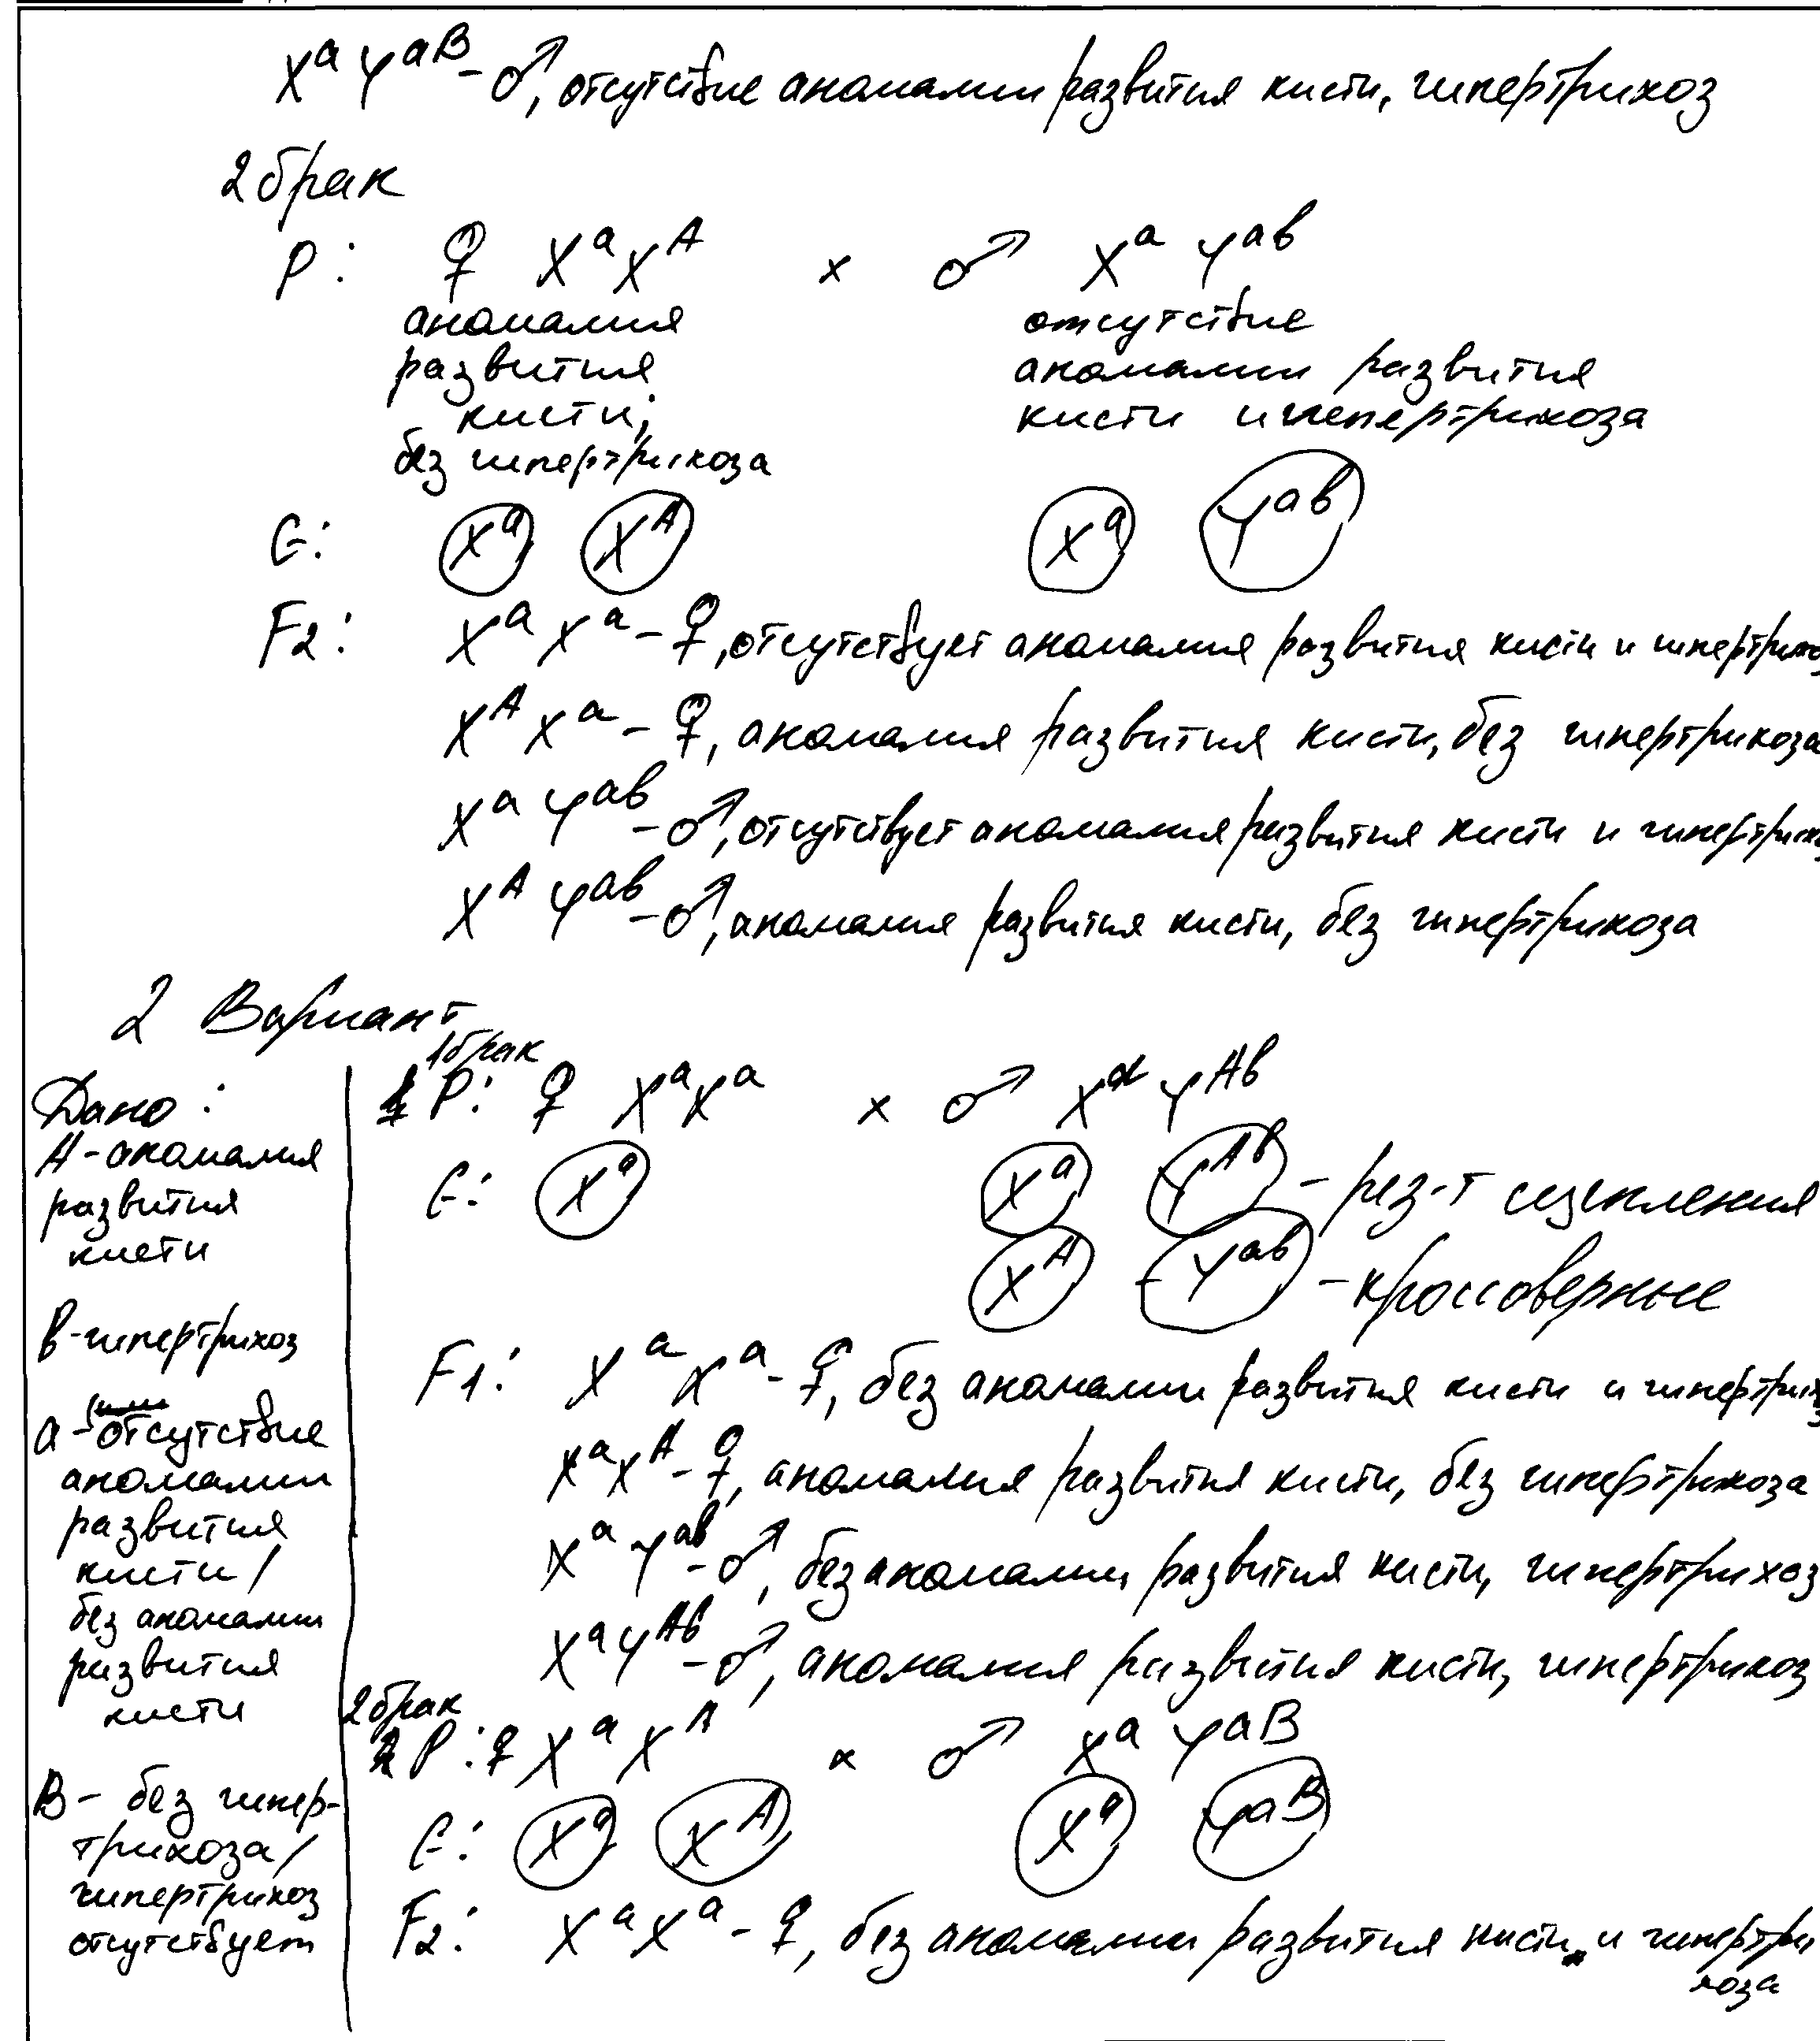 Xᵃ Yᵃᴮ - ♂, отсутствие аномалии развития кисти, гипертрихоз
2 брак
P: ♀ XᵃXᴬ × ♂ Xᵃ Yᵃᵇ
аномалия развития кисти, без гипертрихоза
отсутствие аномалии развития кисти и гипертрихоза
G: Xᵃ Xᴬ Xᵃ Yᵃᵇ
F2: Xᵃ Xᵃ - ♀, отсутствует аномалия развития кисти и
Xᴬ Xᵃ - ♀, аномалия развития кисти, без гипертрихоза
Xᵃ Yᵃᵇ - ♂, отсутствует аномалия развития кисти и
Xᴬ Yᵃᵇ - ♂, аномалия развития кисти, без гипертрихоза
2 Вариант
Дано:
А - аномалия
развития
кисти
в - гипертрихоз
а - отсутствие
аномалии
развития
кисти /
без аномалии
развития
кисти
В - без гипер-
трихоза /
гипертрихоз
отсутствует
1 брак
P: ♀ XᵃXᵃ × ♂ Xᵃ Yᴬᵇ
G: Xᵃ Xᵃ Yᴬᵇ - рез-т сцепления
Xᴬ Yᵃᵇ - кроссоверные
F1: Xᵃ Xᵃ - ♀, без аномалии развития кисти и
XᵃXᴬ - ♀, аномалия развития кисти, без гипертрихоза
Xᵃ Yᵃᵇ - ♂, без аномалии развития кисти, гипертрихоз
XᵃYᴬᵇ - ♂, аномалия развития кисти, гипертрихоз
2 брак
P: ♀ Xᵃ Xᴬ × ♂ Xᵃ Yᵃᴮ
G: Xᵃ Xᴬ Xᵃ Yᵃᴮ
F2: Xᵃ Xᵃ - ♀, без аномалии развития кисти и гипертри
хоза